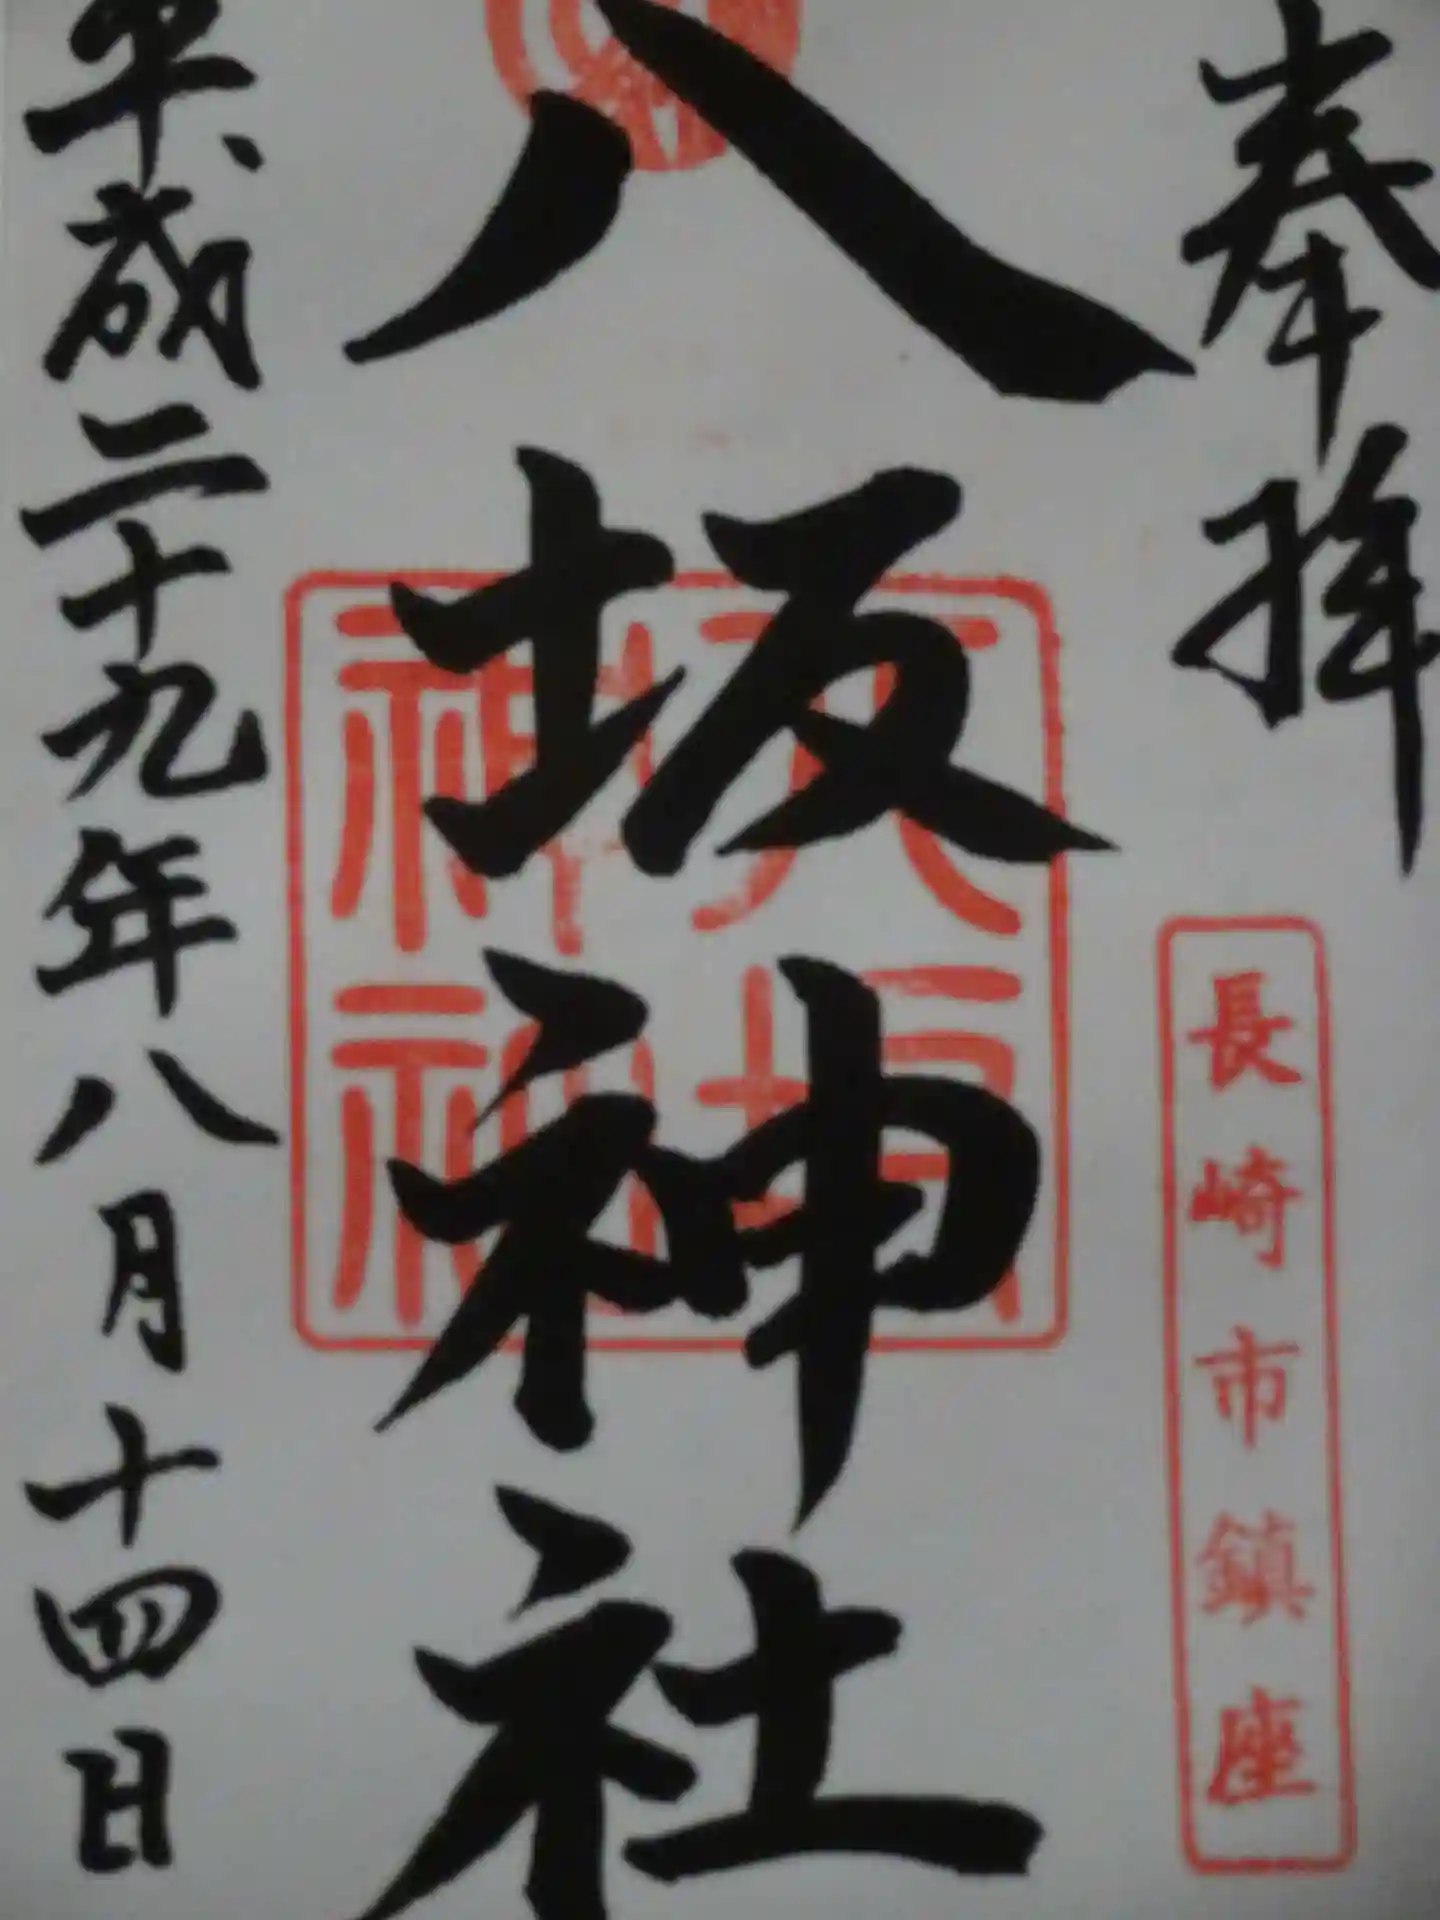 奉拝
長崎市鎮座
八坂神社
八坂
神社
平成二十九年八月十四日